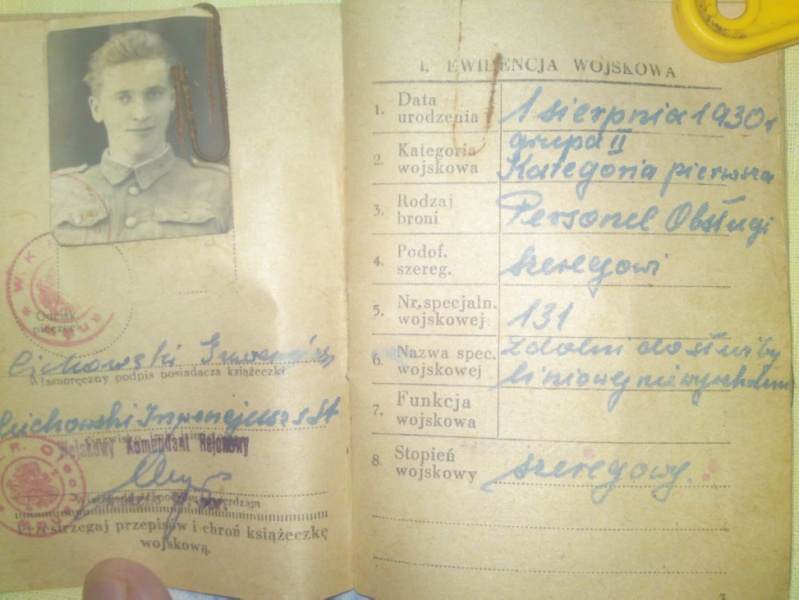 Cichowski
Własnoręczny podpis posiadacza książeczki
Cichowski
Wojskowy Komendant Rejonowy
Przestrzegaj przepisów i chroń książeczkę
wojskową.
I. EWIDENCJA WOJSKOWA
1. Data urodzenia 1 sierpnia 1930 r
grupa II
2. Kategoria wojskowa Kategoria pierwsza
3. Rodzaj broni Personel Obsługi
4. Podof. szereg. szeregowi
5. Nr. specjaln. wojskowej 131
6. Nazwa spec. wojskowej Zdolni do służby
liniowej
7. Funkcja wojskowa
8. Stopień wojskowy szeregowy.
3